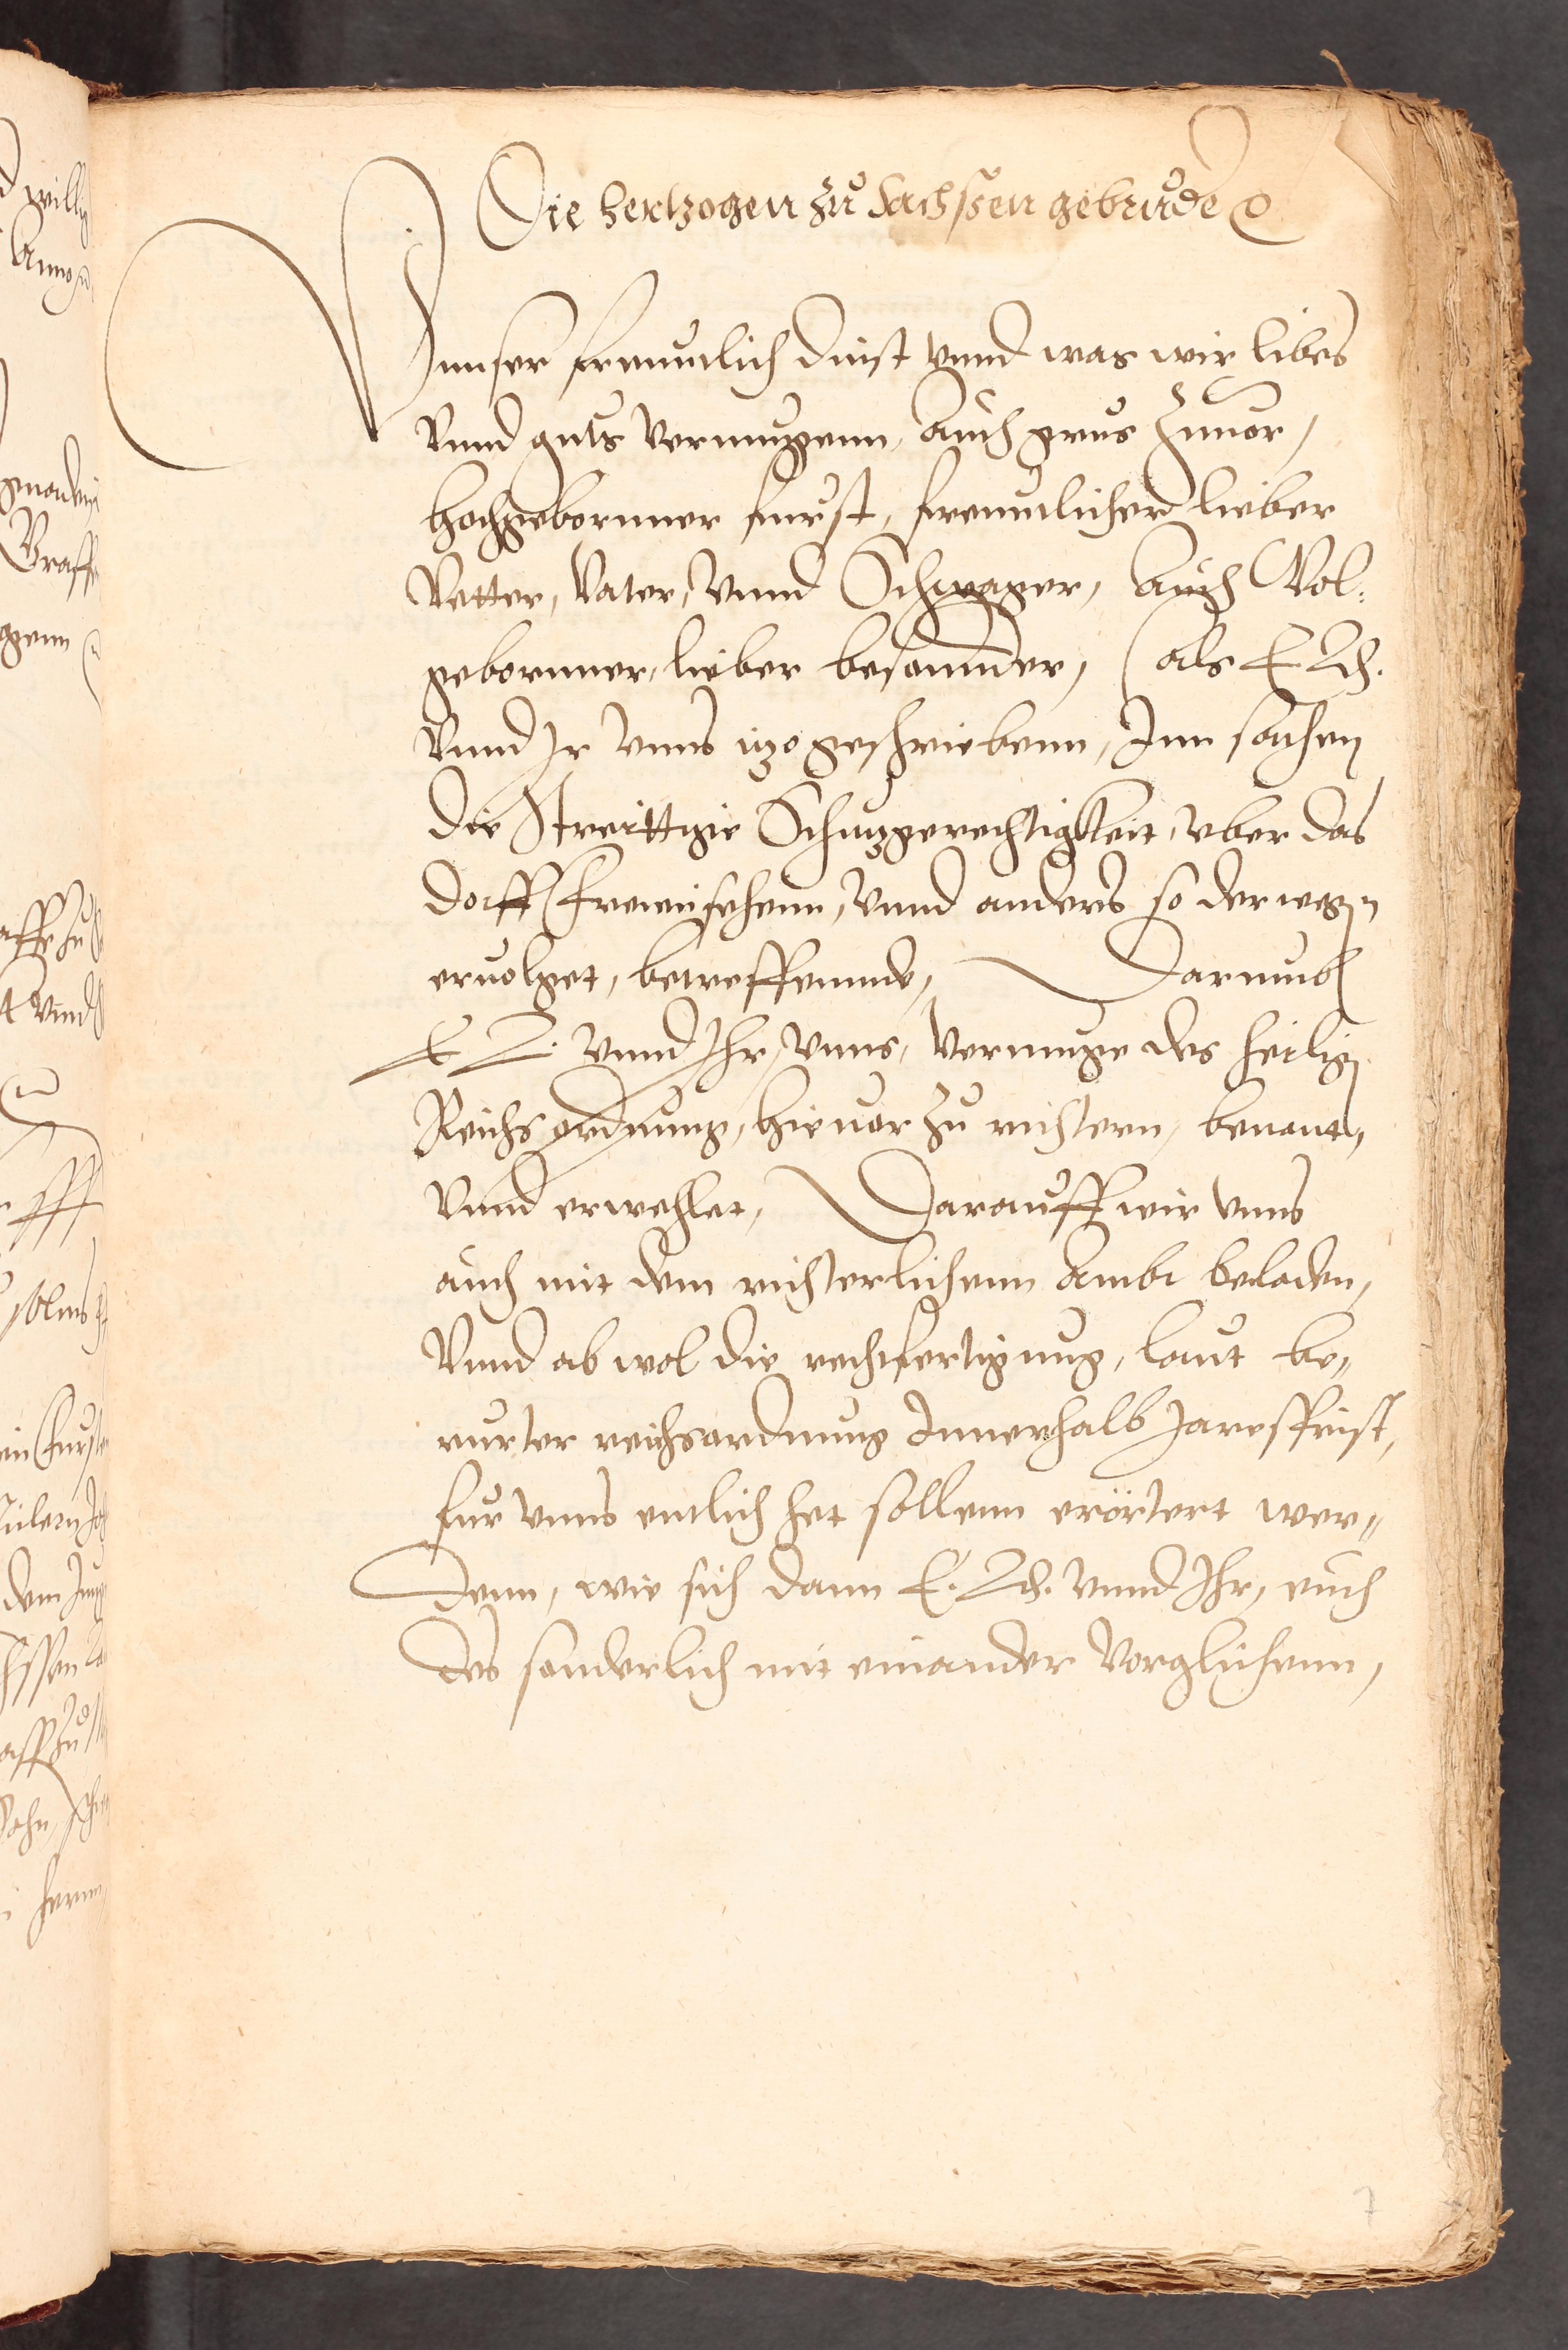 Die Hertzogen zu Sachssen gebruder
Vnnser freuntlich dinst vnnd was wir libes
Vnnd guts Vermugenn, Auch grus Zuuor,
Hochgebornner furst, freuntlicher lieber
Vetter, Vater, Vnnd Schwager, Auch Wol-
gebornner, lieber besonnder, Als E. Ld.
Vnnd Ir Vnns itzo geschriebenn, Inn sachen
die Streittgie Schutzgerechtigkeit, vber das
dorff Freienschenn, Vnnd anders so derwegen
eruolget, betreffennde, Darumb
E L. Vnnd Ihr, Vnns, Vermuge des heilign
Reichs ordnung, hieuor Zu richtern, benant,
Vnnd erwehlet, Darauff wir Vnns
auch mit dem richterlichenn Ambt beladen,
Vnnd ob wol die rechtfertigung, laut be-
rurter reichsordnung Innerhalb Jaresfrist,
fur Vnns entlich het sollenn erörtert wer-
denn, wie sich dann E. Ld. Vnnd Ihr, euch
des sonderlich mit einander Vorglichenn,
7